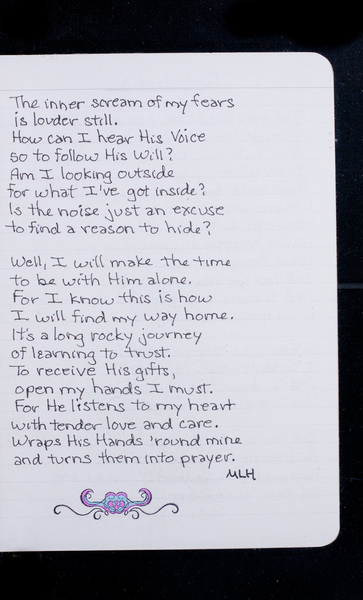 The inner scream of my fears
is louder still.
How can I hear His Voice
so to follow His Will?
Am I looking outside
for what I've got inside?
Is the noise just an excuse
to find a reason to hide?

Well, I will make the time
to be with Him alone.
For I know this is how
I will find my way home.
It's a long rocky journey
of learning to trust.
To receive His gifts,
open my hands I must.
For He listens to my heart
with tender love and care.
Wraps His Hands 'round mine
and turns them into prayer.
MLH